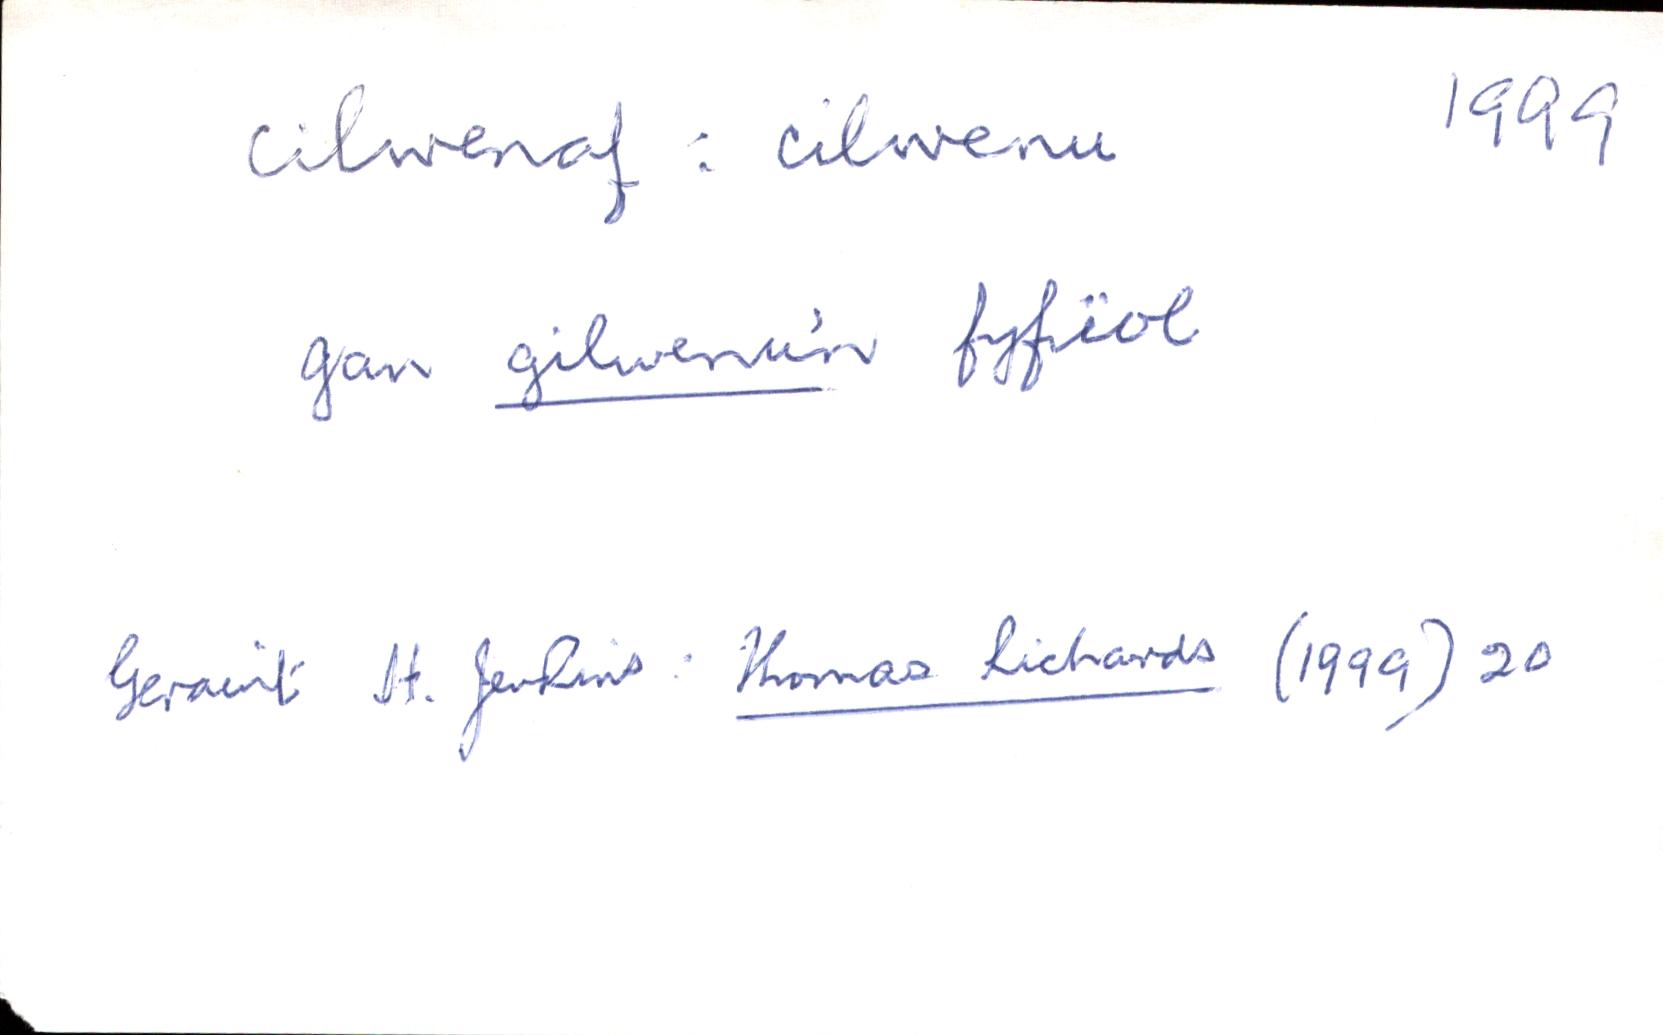 cilwenaf : cilwenu 1999
gan gilwenu'n fyfïol
Geraint H. Jenkins : Thomas Richards (1999) 20